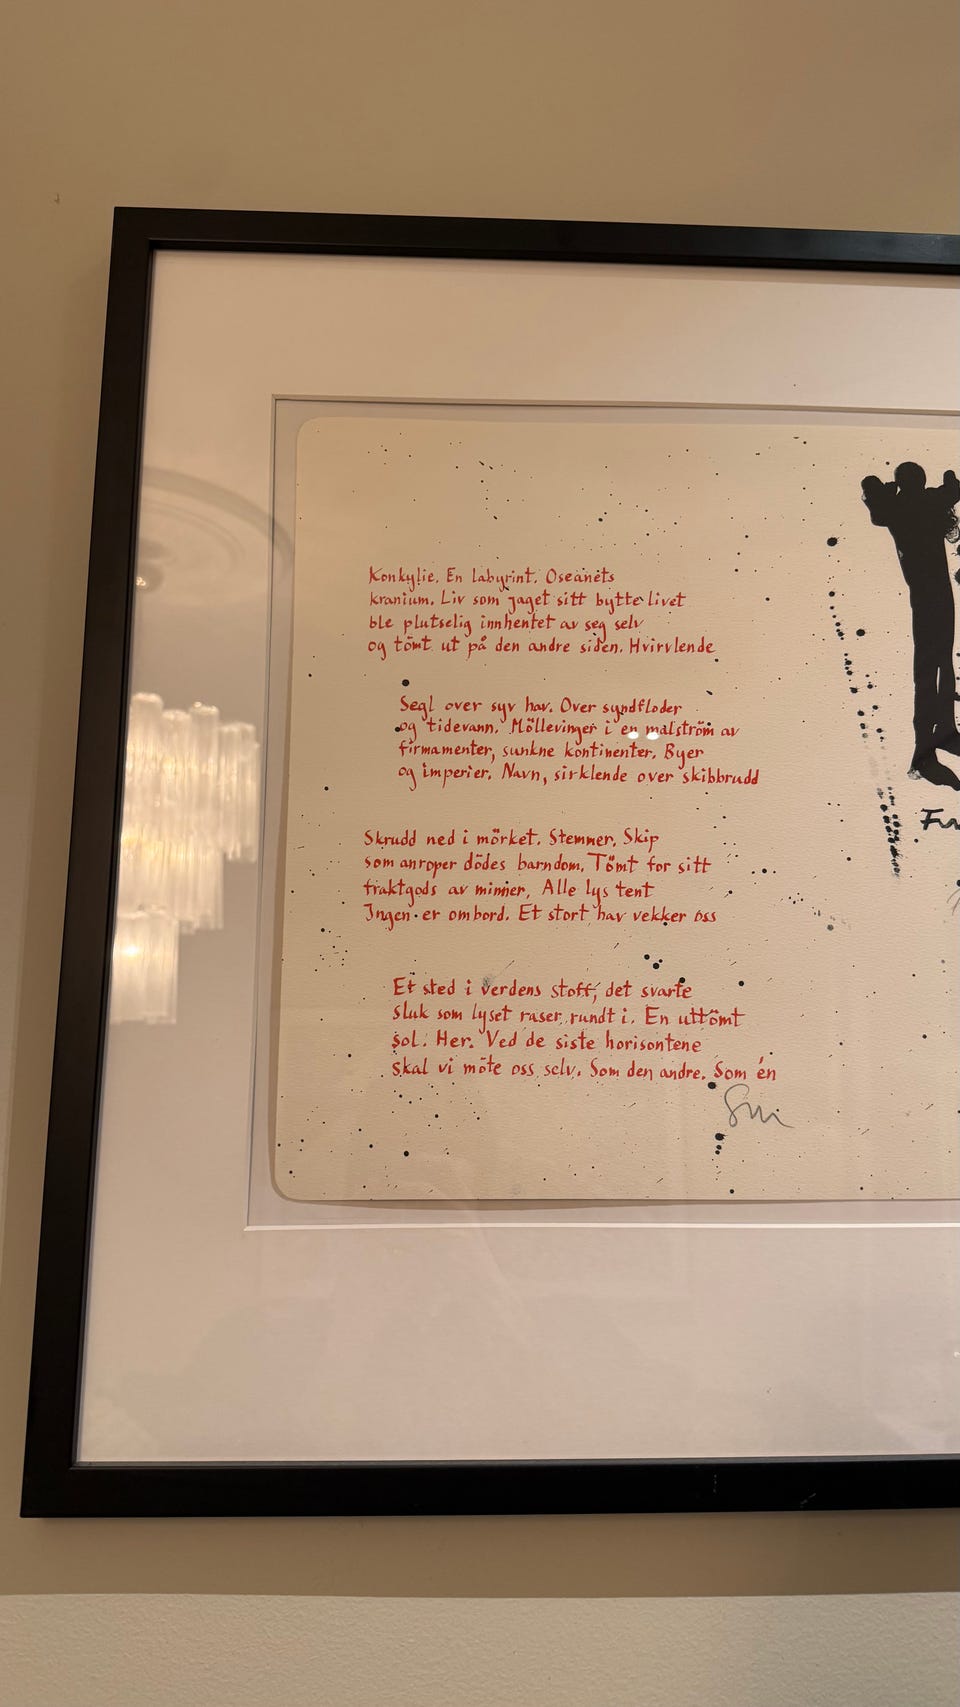 Konkylie. En labyrint. Oseanets
kranium. Liv som jaget sitt bytte livet
ble plutselig innhentet av seg selv
og tömt ut på den andre siden. Hvirvlende
Segl over syv hav. Over syndfloder
og tidevann. Möllevinger i en malström av
firmamenter, sunkne kontinenter. Byer
og imperier. Navn, sirklende over skibbrudd
Skrudd ned i mörket. Stemmer. Skip
som anroper dödes barndom. Tömt for sitt
fraktgods av minner. Alle lys tent
Ingen er ombord. Et stort hav vekker oss
Et sted i verdens stoff, det svarte
sluk som lyset raser rundt i. En uttömt
sol. Her. Ved de siste horisontene
skal vi möte oss selv. Som den andre. Som én